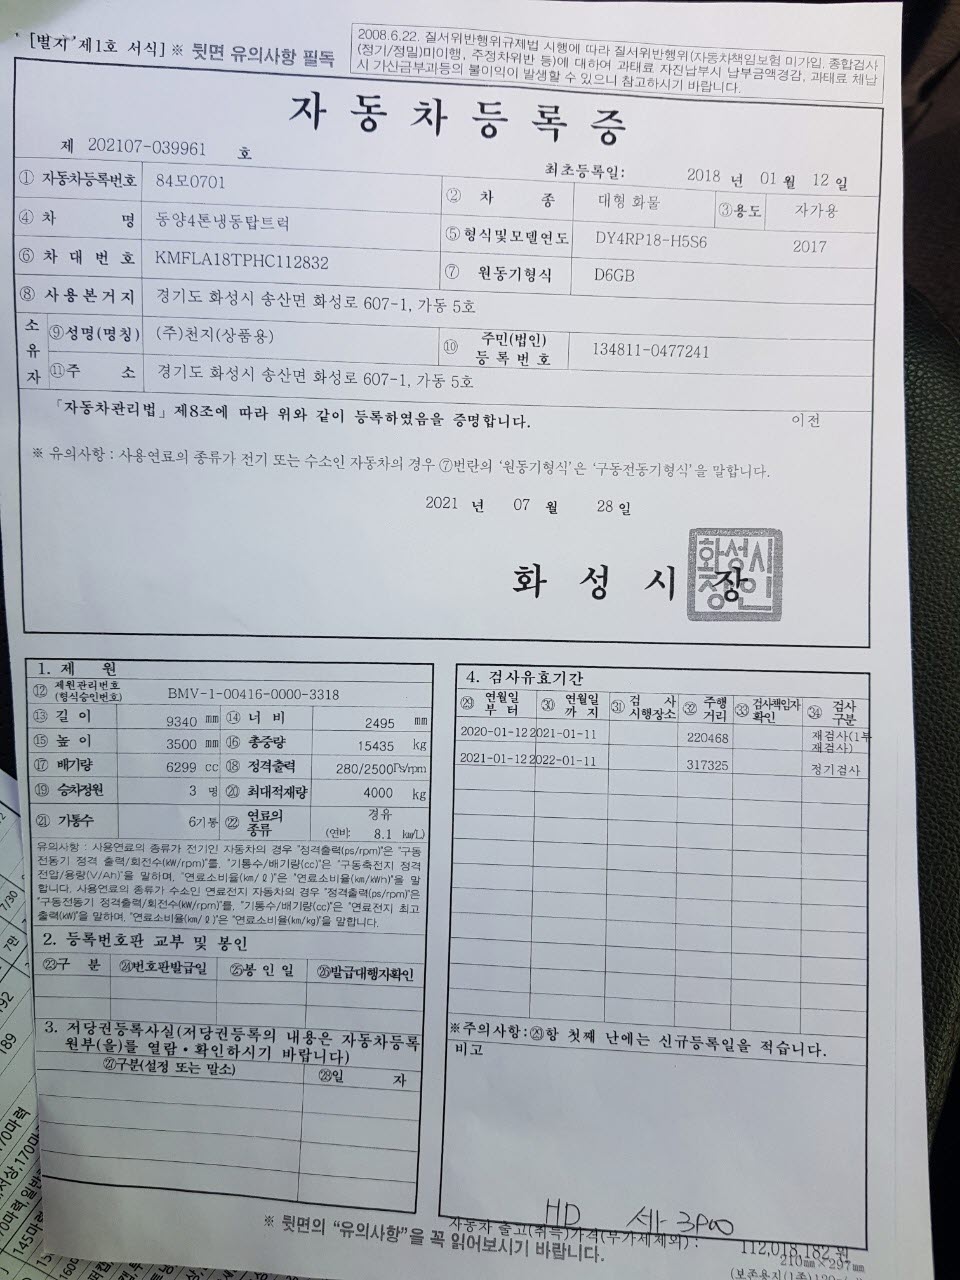 [별지 제1호 서식] ※ 뒷면 유의사항 필독
2008.6.22. 질서위반행위규제법 시행에 따라 질서위반행위(자동차책임보험 미가입, 종합검사
(정기/정밀)미이행, 주정차위반 등)에 대하여 과태료 자진납부시 납부금액경감, 과태료 체납
시 가산금부과등의 불이익이 발생할 수 있으니 참고하시기 바랍니다.
자동차등록증
제 202107-039961 호
최초등록일: 2018 년 01 월 12 일
① 자동차등록번호 84모0701 ② 차 종 대형 화물 ③용도 자가용
④ 차 명 동양4톤냉동탑트럭 ⑤ 형식및모델연도 DY4RP18-H5S6 2017
⑥ 차대번호 KMFLA18TPHC112832 ⑦ 원동기형식 D6GB
⑧ 사용본거지 경기도 화성시 송산면 화성로 607-1, 가동 5호
소유자 ⑨성명(명칭) (주)천지(상품용) ⑩ 주민(법인)등록번호 134811-0477241
⑪주 소 경기도 화성시 송산면 화성로 607-1, 가동 5호
「자동차관리법」제8조에 따라 위와 같이 등록하였음을 증명합니다. 이전
※ 유의사항 : 사용연료의 종류가 전기 또는 수소인 자동차의 경우 ⑦번란의 '원동기형식'은 '구동전동기형식'을 말합니다.
2021 년 07 월 28 일
화성시장
화성시
장인
1. 제 원
⑫ 제원관리번호(형식승인번호) BMV-1-00416-0000-3318
⑬ 길이 9340 mm ⑭ 너비 2495 mm
⑮ 높이 3500 mm ⑯ 총중량 15435 kg
⑰ 배기량 6299 cc ⑱ 정격출력 280/2500Ps/rpm
⑲ 승차정원 3 명 ⑳ 최대적재량 4000 kg
㉑ 기통수 6기통 ㉒ 연료의 종류 경유
(연비: 8.1 km/L)
유의사항 : 사용연료의 종류가 전기인 자동차의 경우 "정격출력(ps/rpm)"은 "구동
전동기 정격 출력/회전수(kW/rpm)"를, "기통수/배기량(cc)"은 "구동축전지 정격
전압/용량(V/Ah)"을 말하며, "연료소비율(km/ℓ)"은 "연료소비율(km/kWh)"을 말
합니다. 사용연료의 종류가 수소인 연료전지 자동차의 경우 "정격출력(ps/rpm)"은
"구동전동기 정격출력/회전수(kW/rpm)"를, "기통수/배기량(cc)"은 "연료전지 최고
출력(kW)"을 말하며, "연료소비율(km/ℓ)"은 "연료소비율(km/kg)"을 말합니다.
2. 등록번호판 교부 및 봉인
㉓구 분 ㉔번호판발급일 ㉕봉인일 ㉖발급대행자확인
3. 저당권등록사실(저당권등록의 내용은 자동차등록
원부(을)를 열람·확인하시기 바랍니다)
㉗구분(설정 또는 말소) ㉘일 자
4. 검사유효기간
㉙ 연월일부터 ㉚ 연월일까지 ㉛ 검사시행장소 ㉜ 주행거리 ㉝ 검사책임자확인 ㉞ 검사구분
2020-01-12 2021-01-11 220468 재검사(1부
재검사)
2021-01-12 2022-01-11 317325 정기검사
※주의사항:㉙항 첫째 난에는 신규등록일을 적습니다.
비고
HD 세나 3P00
자동차 출고(취득)가격(부가세제외) : 112,018,182 원
※ 뒷면의 "유의사항"을 꼭 읽어보시기 바랍니다.
210mm×297mm
7/30
7만
192
189
170마력
145마력